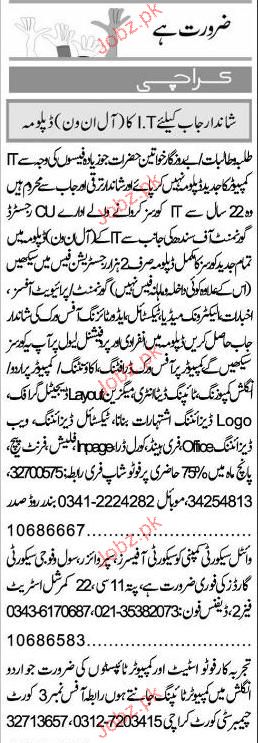 ضرورت ہے
کراچی
شاندار جاب کیلئے I.T کا (آل ان ون) ڈپلومہ
طلبہ و طالبات / بے روزگار خواتین حضرات جو زیادہ فیسوں کی وجہ سے IT
کمپیوٹر کا جدید ڈپلومہ نہیں کر سکے اور شاندار ترقی اور جاب سے محروم ہیں
وہ 22 سال سے IT کورسز کروانے والے ادارے CU رجسٹرڈ
گورنمنٹ آف سندھ کی جانب سے IT کے (آل ان ون) ڈپلومہ میں
تمام جدید کورسز کا مکمل ڈپلومہ صرف 2 ہزار رجسٹریشن فیس میں سیکھیں
(اس کے علاوہ کوئی داخلہ و ماہانہ فیس نہیں) گورنمنٹ / پرائیویٹ آفسز،
اخبارات، الیکٹرونک میڈیا، ٹیکسٹائل، ایڈورٹائزنگ آفس ورک کی شاندار
جاب حاصل کریں ڈپلومہ میں انفرادی اور پروفیشنل لیول پر آپ یہ کورسز
سیکھیں گے کمپیوٹر پر آفس ورک، ڈرافٹنگ، اکاؤنٹنگ / کمپیوٹر پر اردو /
انگلش کمپوزنگ، ٹائپنگ، ڈیٹا انٹری، میگزین Layout، ڈیجیٹل گرافک،
Logo ڈیزائننگ، اشتہارات بنانا، ٹیکسٹائل ڈیزائننگ، ویب
ڈیزائننگ Office، فری ہینڈ، کورل ڈرا، Inpage، فلیش، فرنٹ پیج،
پانچ ماہ میں 75% حاضری پر فوٹو شاپ فری رابطہ: 32700575،
34254813، موبائل 0341-2224282 بندر روڈ صدر
10686667
وائٹل سیکورٹی کمپنی کو سیکورٹی آفیسرز، سپروائزر، سول و فوجی سیکورٹی
گارڈز کی فوری ضرورت ہے، پتہ 11 سی، 22 کمرشل اسٹریٹ
فیز 2، ڈیفنس فون: 021-35382073، 0343-6170687
10686583
تجربہ کار فوٹو اسٹیٹ اور کمپیوٹر ٹائپسٹوں کی ضرورت جو اردو
انگلش میں کمپیوٹر ٹائپنگ جانتے ہوں رابطہ آفس نمبر 3 کورٹ
چیمبر سٹی کورٹ کراچی 0312-7203415، 32713657
Jobz.pk
Jobz.pk
Jobz.pk